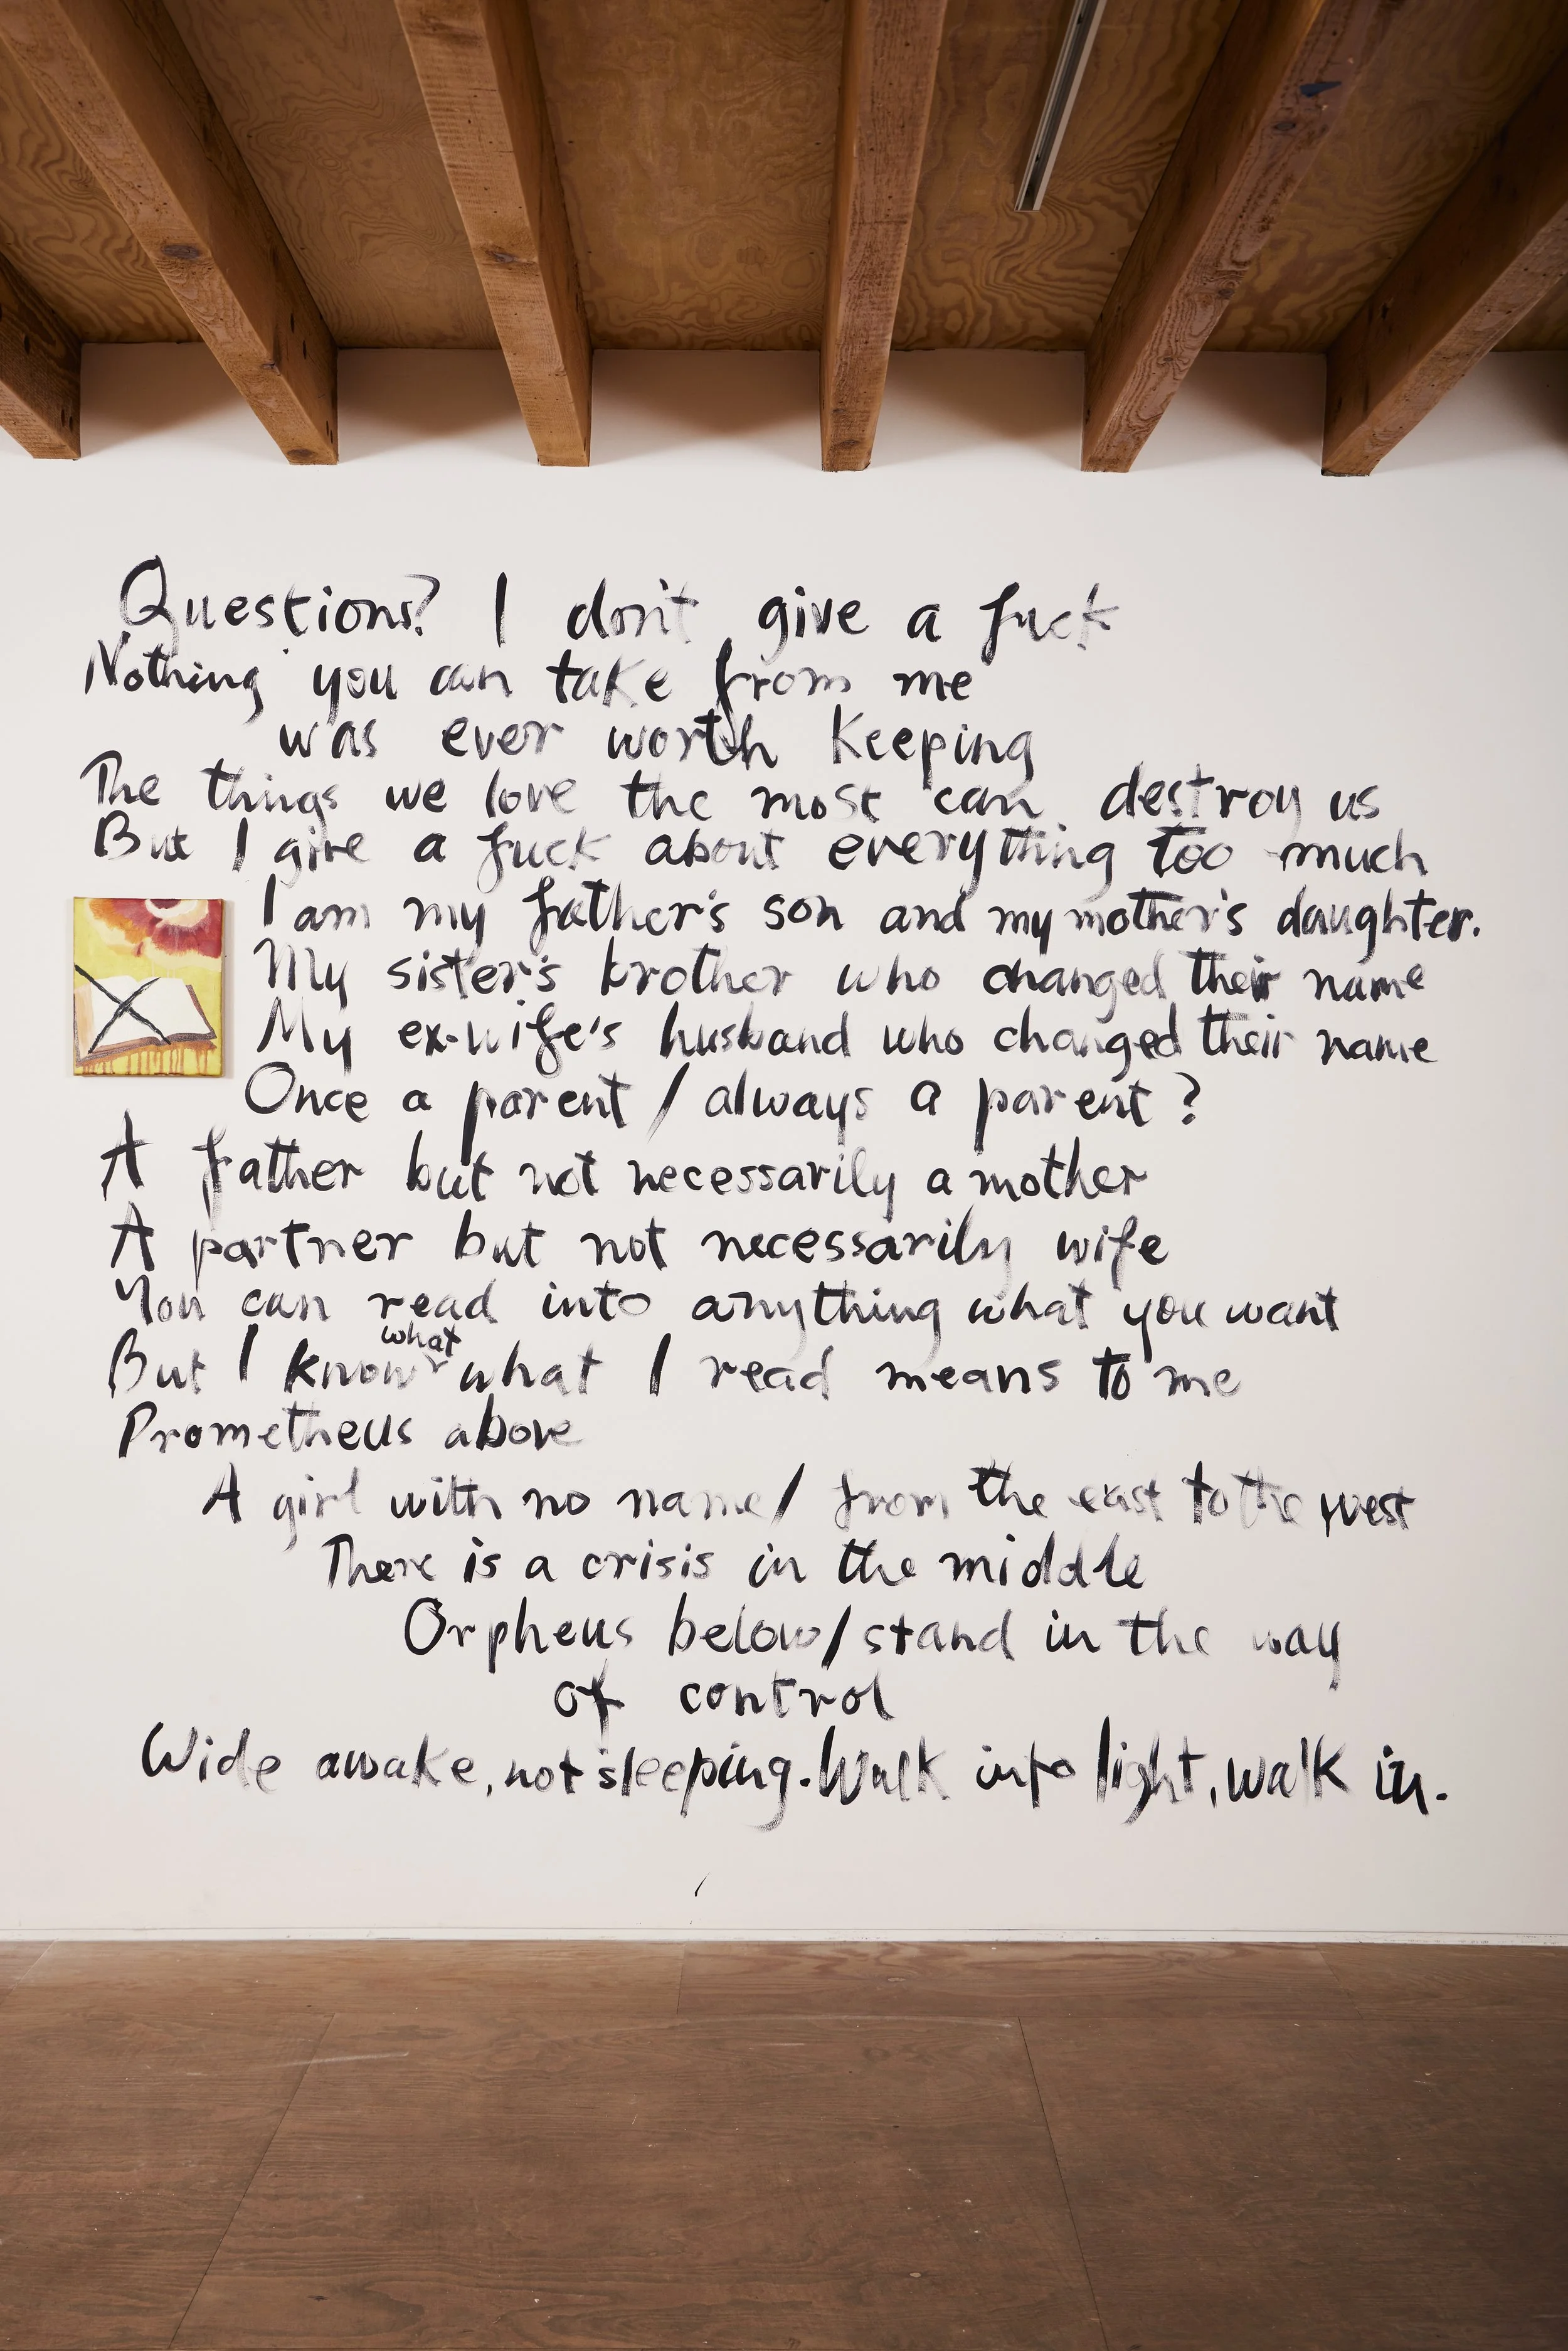 Questions? I don't give a fuck
Nothing you can take from me
was ever worth keeping
The things we love the most can destroy us
But I give a fuck about everything too much
I am my father's son and my mother's daughter.
My sister's brother who changed their name
My ex-wife's husband who changed their name
Once a parent / always a parent?
A father but not necessarily a mother
A partner but not necessarily wife
You can read into anything what you want
what
But I know what I read means to me
Prometheus above
A girl with no name / from the east to the west
There is a crisis in the middle
Orpheus below / stand in the way
of control
Wide awake, not sleeping. Walk into light, walk in.